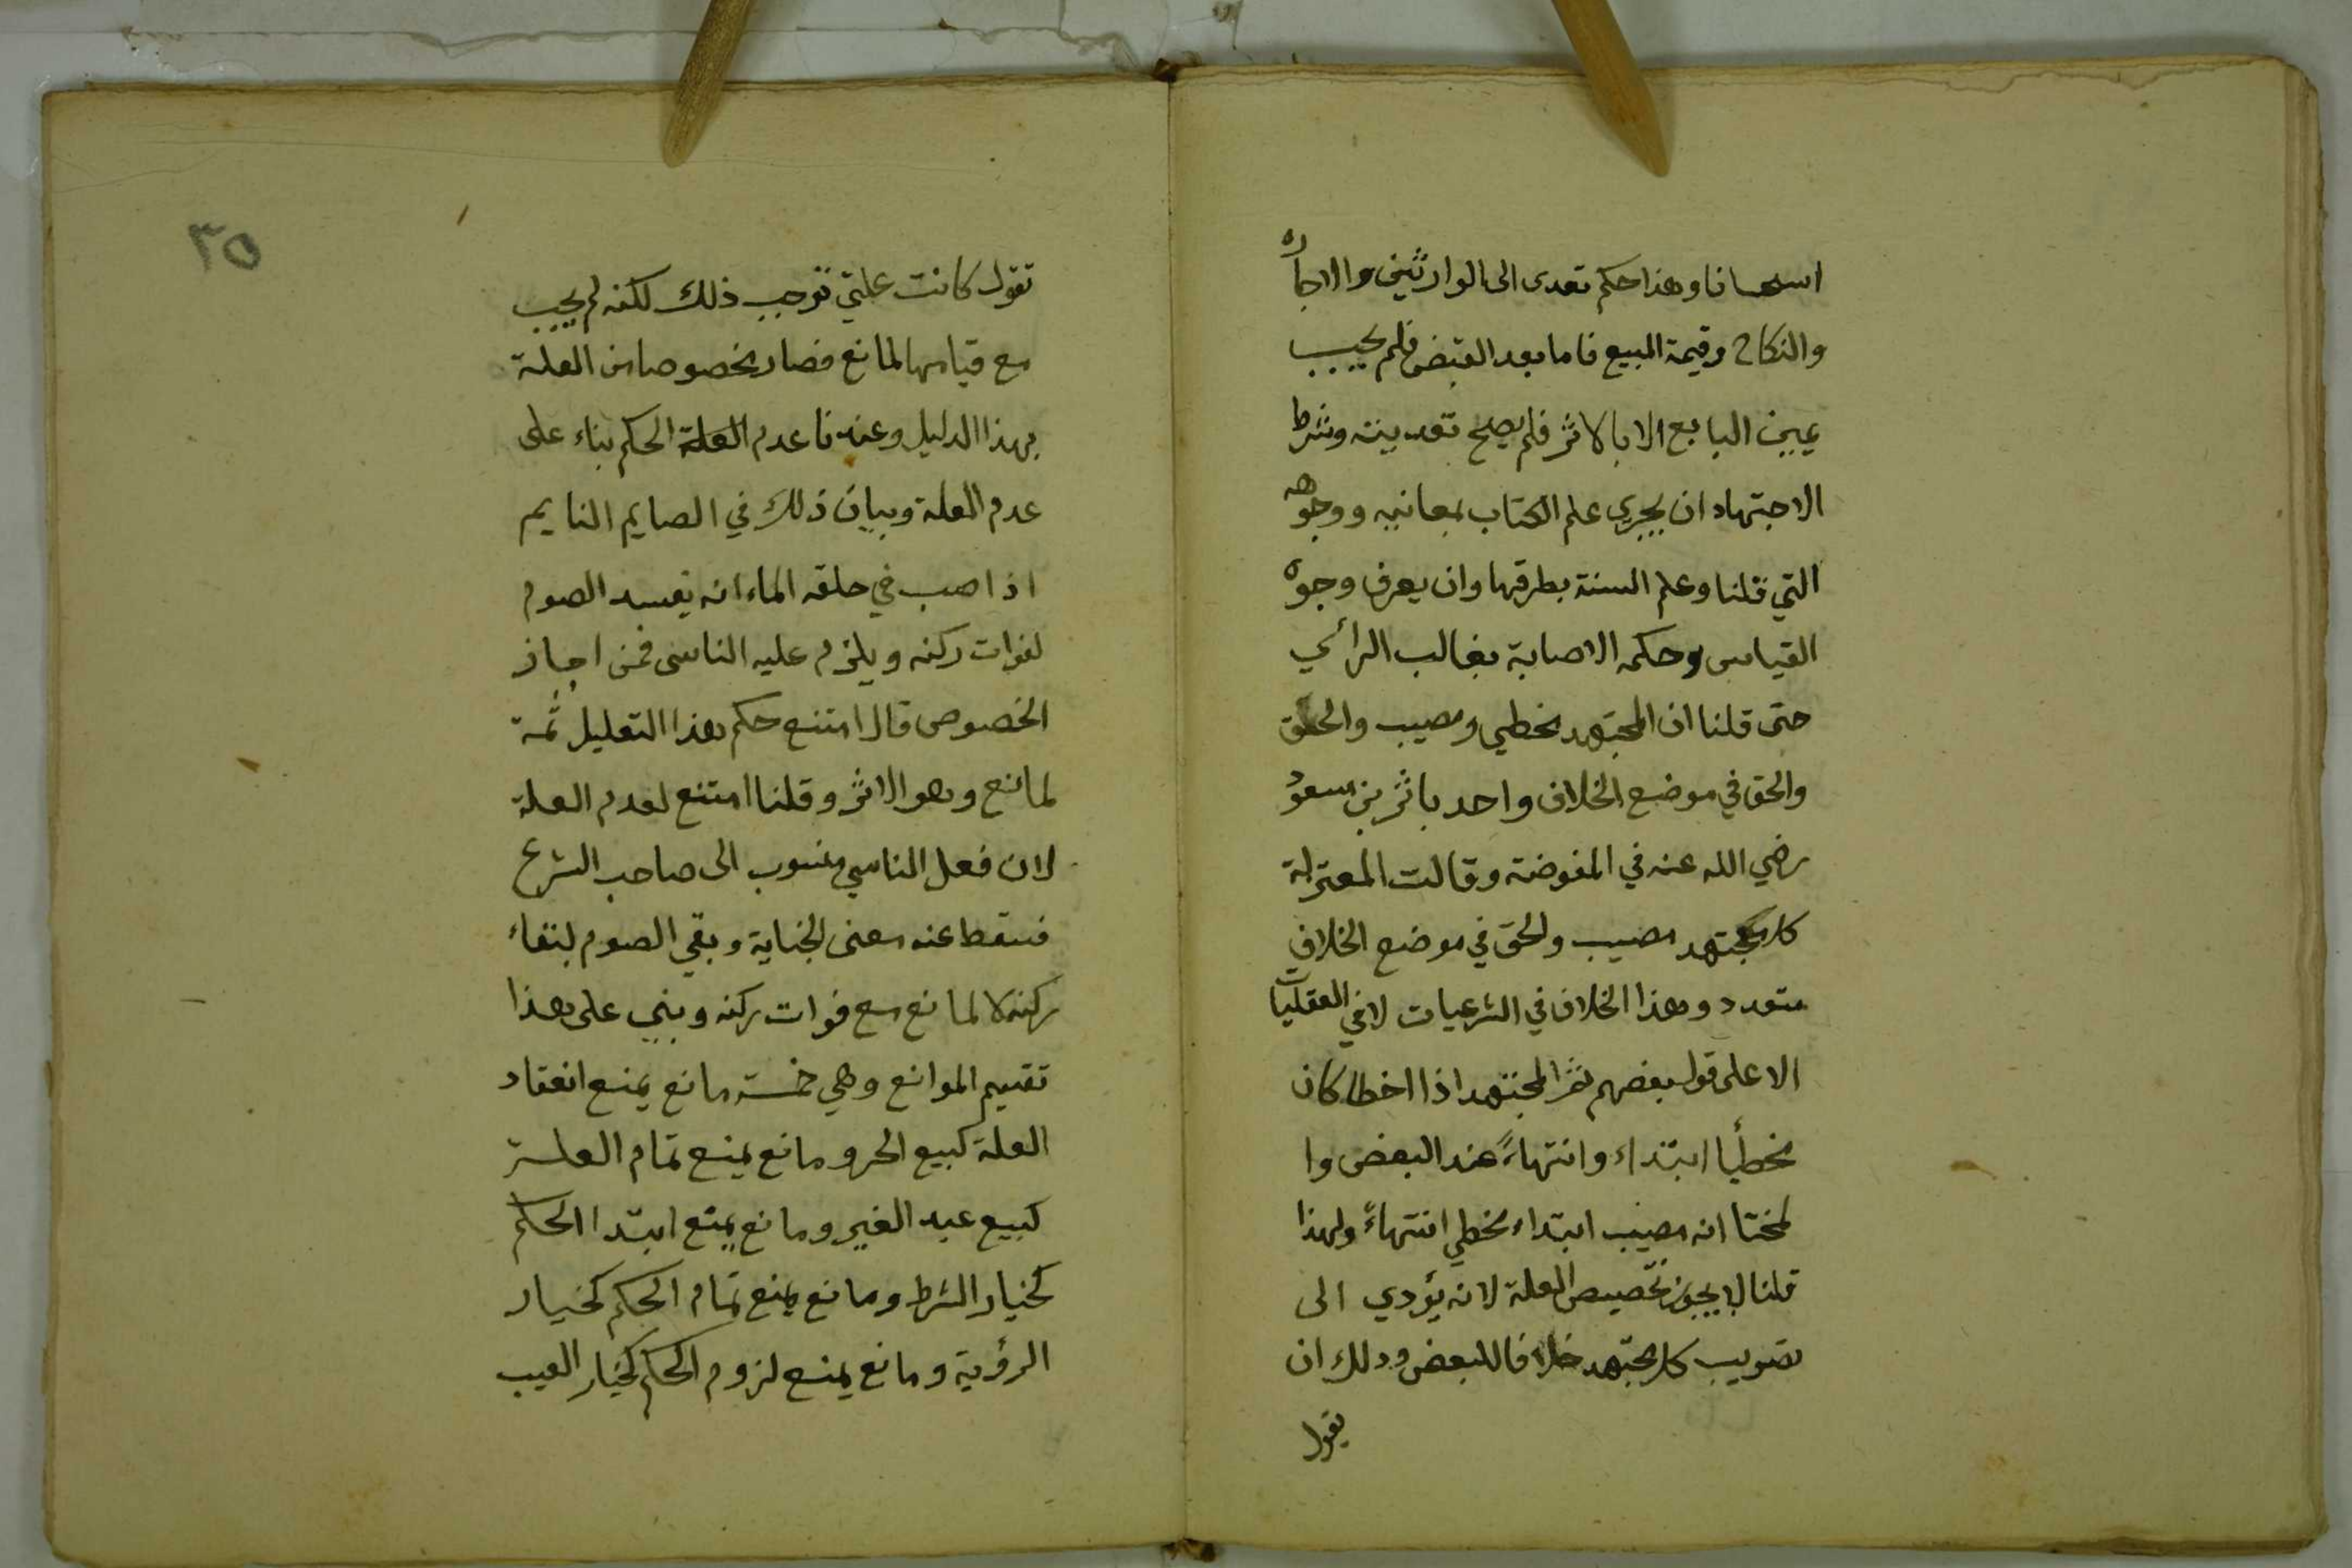 استحسانا وهذا حكم تعدى الى الوارثين والاجارة
والنكاح وقيمة المبيع فاما بعد القبض فلم يجب
يمين البايع الا بالاثر فلم يصح تعديته وشرط
الاجتهاد ان يجري علم الكتاب بمعانيه ووجوهه
التي قلنا وعلم السنة بطرقها وان يعرف وجوه
القياس وحكمه الاصابة بغالب الرأي
حتى قلنا ان المجتهد يخطي ومصيب والحق
والحق في موضع الخلاف واحد باثر بن مسعود
رضي الله عنه في المفوضة وقالت المعتزلة
كل مجتهد مصيب والحق في موضع الخلاف
متعدد وهذا الخلاف في الشرعيات لا في العقليات
الا على قول بعضهم ثم المجتهد اذا اخطا كان
مخطيأ ابتداء وانتهاءً عند البعض وا
لمختا انه مصيب ابتداء مخطي انتهاءً ولهذا
قلنا لا يجوز تخصيص العلة لانه يؤدي الى
تصويب كل مجتهد خلافا للبعض وذلك ان
يقول
٣٥
تقول كانت علتي توجب ذلك لكنه لم يجب
مع قيامها لمانع فصار مخصوصا من العلة
بهذا الدليل وعندنا عدم العلة الحكم بناء على
عدم العلة وبيان ذلك في الصايم النايم
اذا صب في حلقه الماء انه يفسد الصوم
لفوات ركنه ويلزم عليه الناسى فمن اجاز
الخصوص قال امتنع حكم هذا التعليل ثُمة
لمانع وهو الاثر وقلنا امتنع لعدم العلة
لان فعل الناسي منسوب الى صاحب الشرع
فسقط عنه معنى الجناية وبقي الصوم لبقاء
ركنه لا لمانع مع فوات ركنه وبني على هذا
تقسيم الموانع وهي خمسة مانع يمنع انعقاد
العلة كبيع الحر ومانع يمنع تمام العلة
كبيع عبد الغير ومانع يمنع ابتدا الحكم
كخيار الشرط ومانع يمنع تمام الحكم كخيار
الرؤية ومانع يمنع لزوم الحكم كخيار العيب